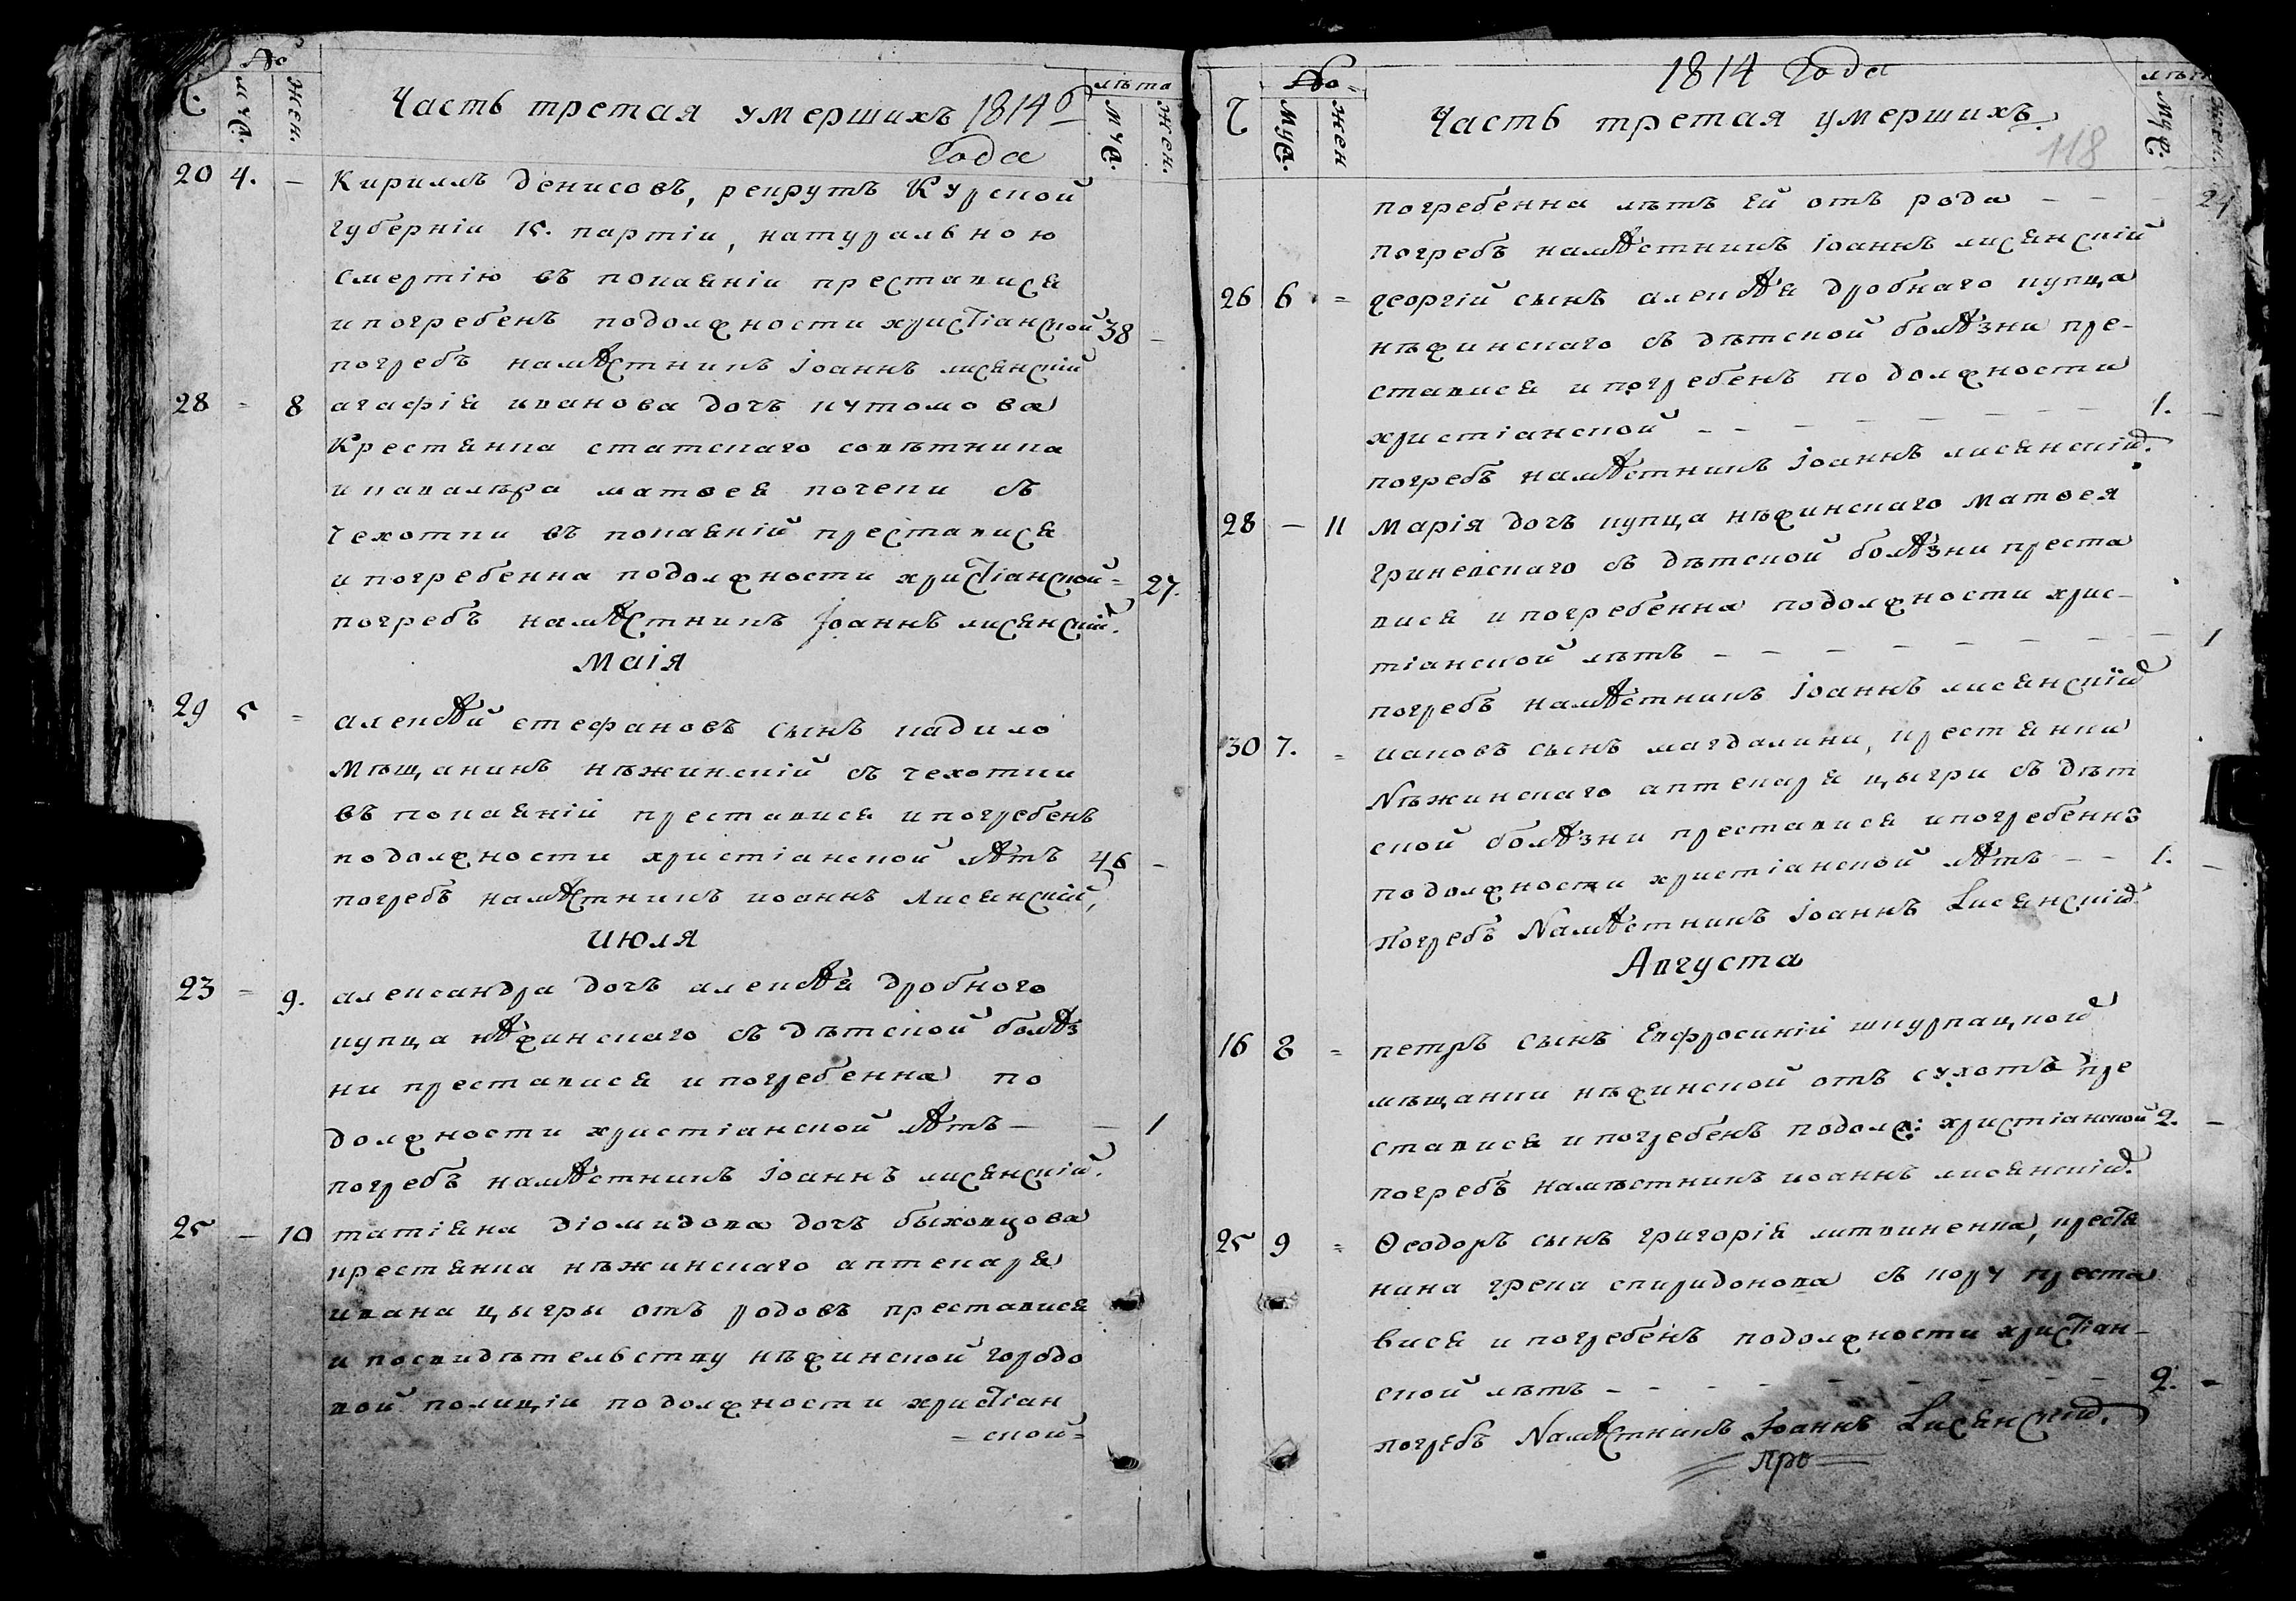 Ч. № муж. жен. Часть третая умершихъ 1814го лѣта муж. жен.
Года
20 4. – Кириллъ денисовъ, рекрутъ Курской
губерніи 15. партіи, натуральною
смертію въ покаяніи преставися
и погребенъ подолжности христіанской 38 –
погребъ намѣстникъ Іоаннъ лисянскій
28 = 8 агафія иванова дочъ кутомова
Крестянка статскаго совѣтника
и кавалѣра матвея кочеки съ
чехотки въ покаяній преставися
и погребенна подолжности христіанской = 27.
погребъ намѣстникъ Іоаннъ лисянскій.
Маія
29 5 = алексѣй стефановъ сынъ кадило
мѣщанинъ нѣжинскій съ чехотки
въ покаяній преставися и погребенъ
подолжности христіанской лѣтъ 46 –
погребъ намѣстникъ иоаннъ Лисянскій,
Июля
23 = 9. александра дочъ алексѣя дробного
купца нѣжинскаго съ дѣтской болѣз
ни преставися и погребенна по
должности христіанской лѣтъ – – 1
погребъ намѣстникъ Іоаннъ лисянскій.
25 – 10 татіяна діомидова дочъ быховцова
крестянка нѣжинскаго аптекаря
ивана цыгры отъ родовъ преставися
и посвидѣтельству нѣжинской городо
вой полиціи подолжности христіан
= ской =
1814 Года
Ч № муж. жен Часть третая умершихъ. лѣта муж. жен.
118
погребенна лѣтъ ей отъ рода – – – 24
погребъ намѣстникъ Іоаннъ лисянскій
26 6 = георгій сынъ алексѣя дробнаго купца
нѣжинскаго съ дѣтской болѣзни пре-
ставися и погребенъ по должности
христіанской – – – – – – – 1. –
погребъ намѣстникъ Іоаннъ лисянскій.
28 – 11 Марія дочъ купца нѣжинскаго Матвея
гриневскаго съ дѣтской болѣзни преста
вися и погребенна подолжности хрис-
тіанской лѣтъ – – – – – – – 1
погребъ намѣстникъ Іоаннъ лисянскій
30 7. = иаковъ сынъ магдалини, крестянки
Nѣжинскаго аптекаря цыгри съ дѣт
ской болѣзни преставися и погребеннъ
подолжности христіанской лѣтъ – – 1. –
Погребъ Nамѣстникъ Іоаннъ Lисянскій
Августа
16 8 = петръ Сынъ Евфросиній шкурпацкой
мѣщанки нѣжинской отъ сухотъ пре
ставися и погребенъ подолж: христіанской 2. –
погребъ намѣстникъ иоаннъ лисянскій.
25 9 = Ѳеодоръ сынъ григорія литвиненка, крестя
нина грека спиридонова съ кору преста
вися и погребенъ подолжности христіан-
ской лѣтъ – – – – – – – 2. –
погребъ Nамѣстникъ Іоаннъ Lисянскій.
про